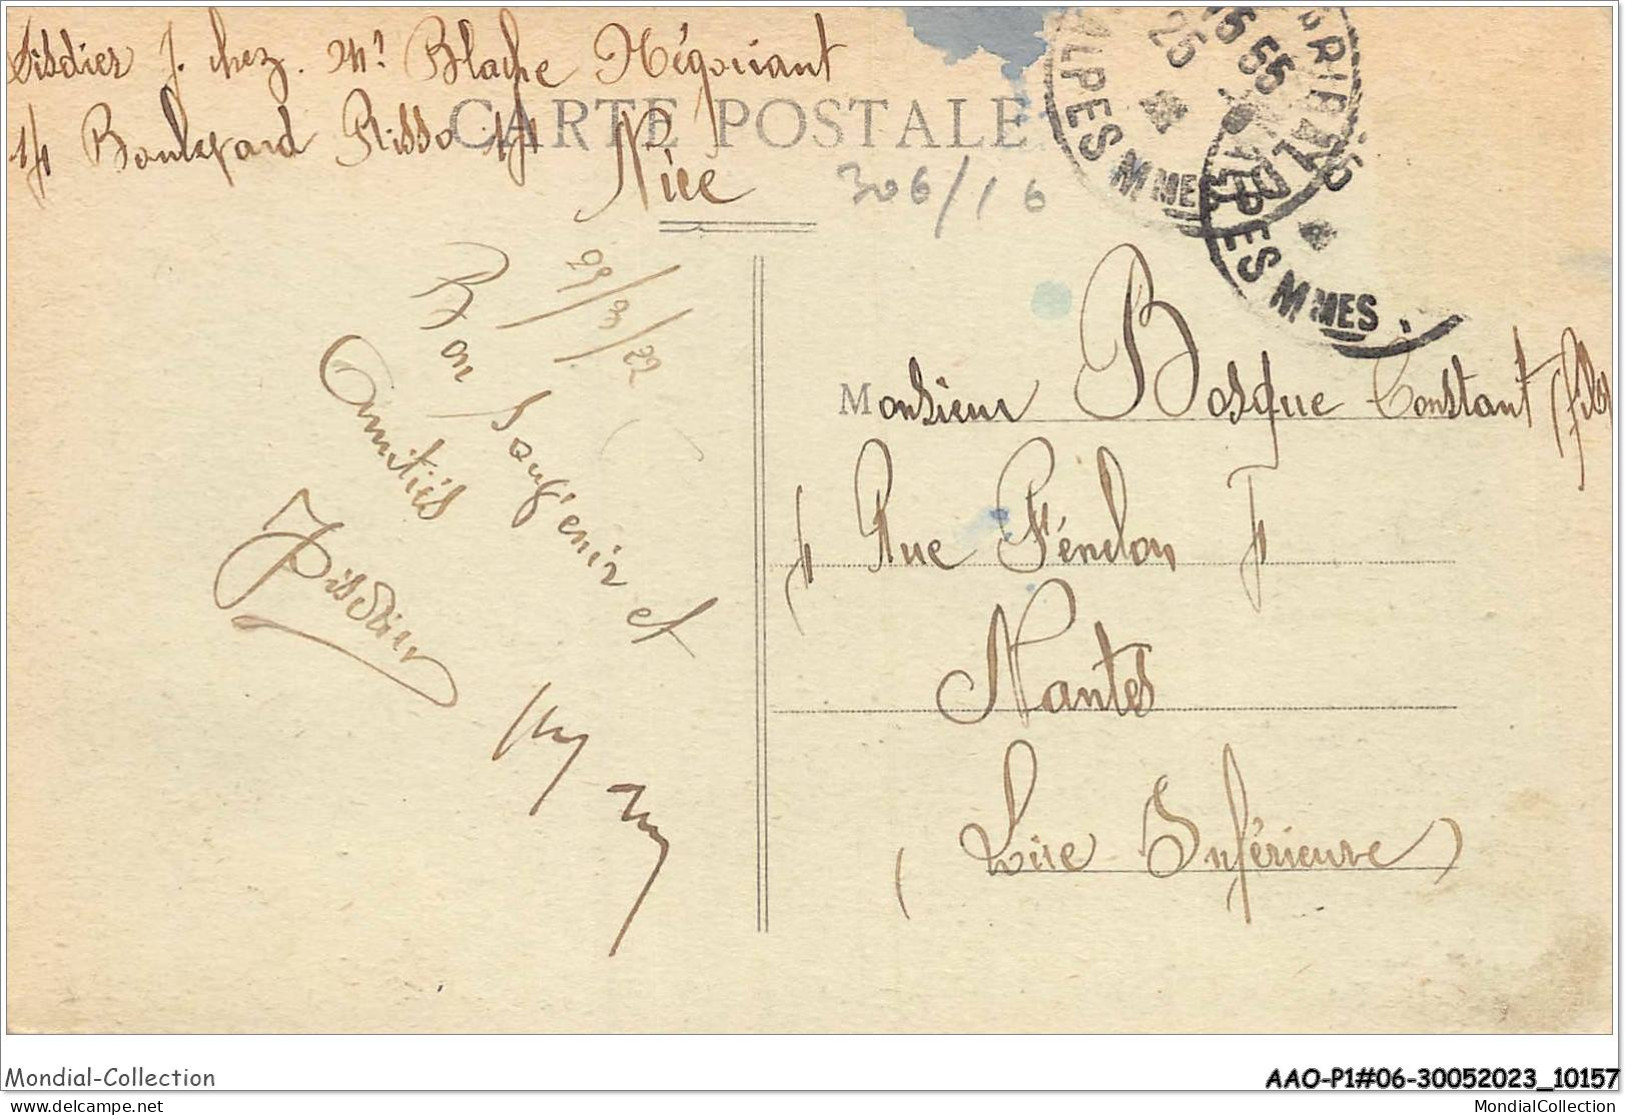 Disdier J. chez. Mr Blache Négociant
14 Boulevard Risso 14
Nice
CARTE POSTALE
306/16
ALPES MMES
25
15 55
ALPES MMES
29/3/22
Bon Souvenir et
Amitiés
JDisdier
Monsieur Bosque Constant (fils)
4 Rue Fénelon 4
Nantes
(Loire Inférieure)
Mondial-Collection
AAO-P1#06-30052023_10157
www.delcampe.net
MondialCollection